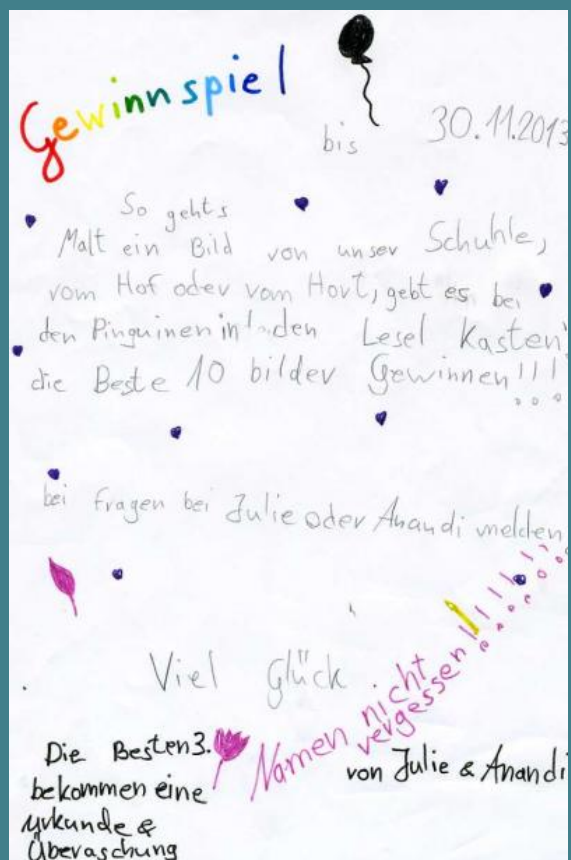 Gewinnspiel
bis 30.11.2013
So gehts
Malt ein Bild von unser Schuhle,
vom Hof oder vom Hort, gebt es bei
den Pinguinen in den Lesel Kasten
die Beste 10 bilder Gewinnen!!!
bei fragen bei Julie oder Anandi melden
Viel Glück
Namen nicht
vergessen!!!!!!!
Die Besten 3.
bekommen eine
urkunde &
Überaschung
von Julie & Anandi